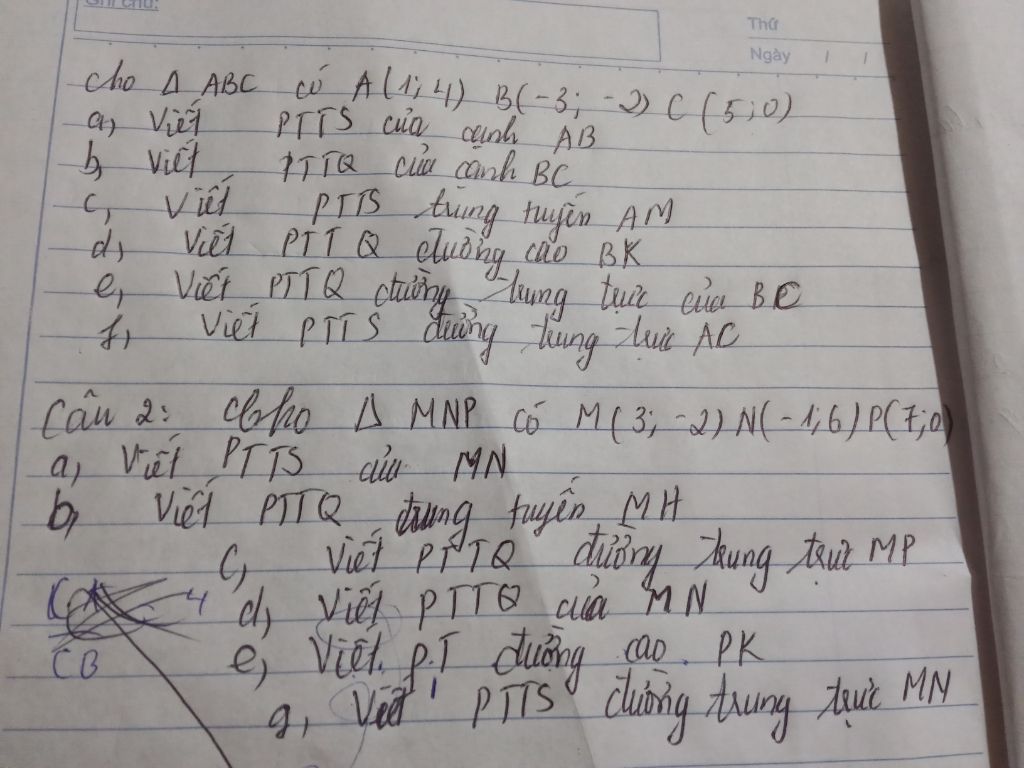 Ghi chú:
Thứ
Ngày / /
Cho Δ ABC có A(1;4) B(-3; -2) C(5;0)
a, Viết PTTS của cạnh AB
b, Viết PTTQ của cạnh BC
c, Viết PTTS trung tuyến AM
d, Viết PTTQ đường cao BK
e, Viết PTTQ đường trung trực của BC
f, Viết PTTS đường trung trực AC
Câu 2: Cho Δ MNP có M(3; -2) N(-1;6) P(7;0)
a, Viết PTTS của MN
b, Viết PTTQ trung tuyến MH
c, Viết PTTQ đường trung trực MP
4 d, Viết PTTQ của MN
CB e, Viết P.T đường cao PK
g, Viết PTTS đường trung trực MN